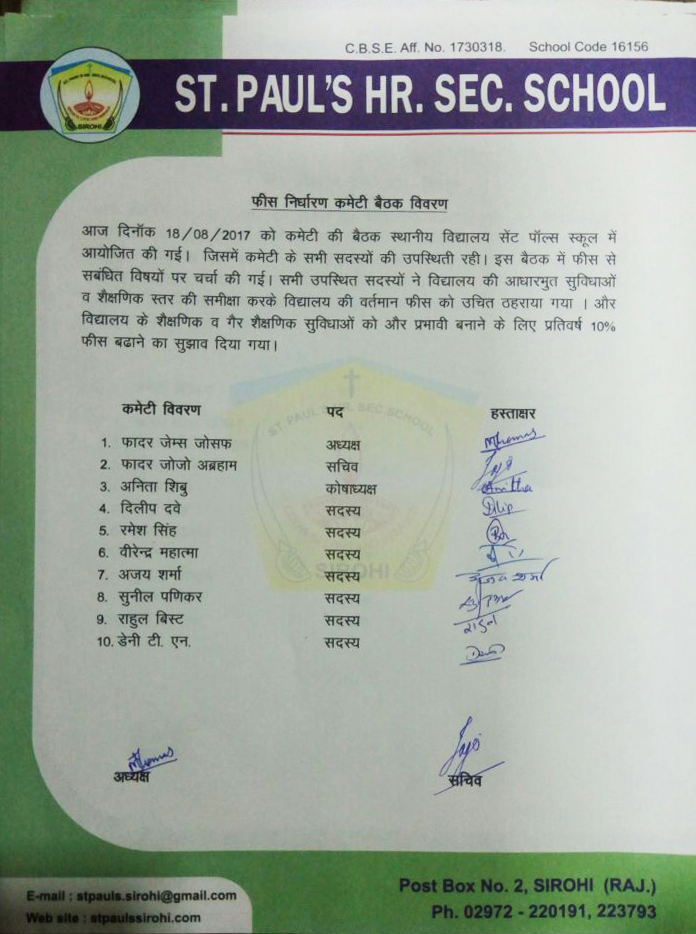 C.B.S.E. Aff. No. 1730318. School Code 16156
ST. PAUL'S HR. SEC. SCHOOL
SIROHI
फीस निर्धारण कमेटी बैठक विवरण
आज दिनॉक 18/08/2017 को कमेटी की बैठक स्थानीय विद्यालय सेंट पॉल्स स्कूल में
आयोजित की गई। जिसमें कमेटी के सभी सदस्यों की उपस्थिती रही। इस बैठक में फीस से
सबंधित विषयों पर चर्चा की गई। सभी उपस्थित सदस्यों ने विद्यालय की आधारभुत सुविधाओं
व शैक्षणिक स्तर की समीक्षा करके विद्यालय की वर्तमान फीस को उचित ठहराया गया । और
विद्यालय के शैक्षणिक व गैर शैक्षणिक सुविधाओं को और प्रभावी बनाने के लिए प्रतिवर्ष 10%
फीस बढाने का सुझाव दिया गया।
ST. PAUL'S HR. SEC. SCHOOL
SIROHI
कमेटी विवरण पद हस्ताक्षर
1. फादर जेम्स जोसफ अध्यक्ष
2. फादर जोजो अब्रहाम सचिव
3. अनिता शिबु कोषाध्यक्ष Anitha
4. दिलीप दवे सदस्य Dilip
5. रमेश सिंह सदस्य
6. वीरेन्द्र महात्मा सदस्य
7. अजय शर्मा सदस्य अजय शर्मा
8. सुनील पणिकर सदस्य
9. राहुल बिस्ट सदस्य राहुल
10. डेनी टी. एन. सदस्य
अध्यक्ष सचिव
E-mail : stpauls.sirohi@gmail.com
Web site : stpaulssirohi.com
Post Box No. 2, SIROHI (RAJ.)
Ph. 02972 - 220191, 223793